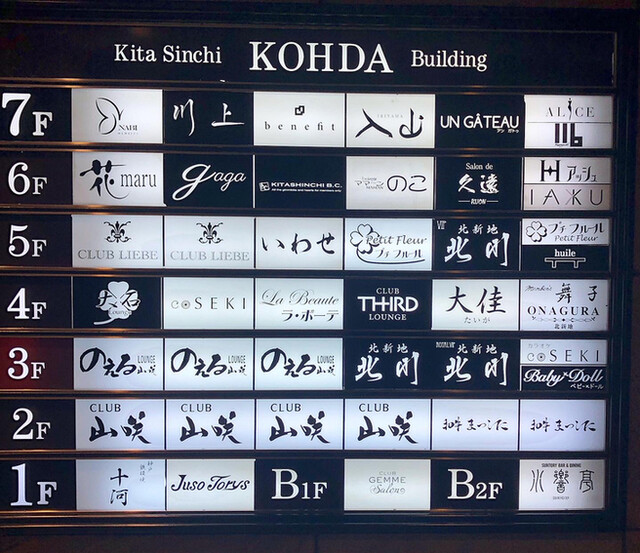 Kita Sinchi KOHDA Building
7F
NABI
川上
benefit
入山
UN GÂTEAU
アン ガトゥ
ALICE
116
6F
花maru
gaga
KITASHINCHI B.C.
のこ
Salon de
久遠
KUON
H アッシュ
IAKU
5F
CLUB LIEBE
CLUB LIEBE
いわせ
Petit Fleur
プチフルール
VIP
北新地
北川
プチフルール
Petit Fleur
huile
4F
大石
Lounge
coSEKI
La Beaute
ラ・ボーテ
CLUB
THIRD
LOUNGE
大佳
たいが
舞子
ONAGURA
北新地
3F
のえる LOUNGE 山咲
のえる LOUNGE 山咲
のえる LOUNGE 山咲
北新地
北川
ROYAL VIP
北新地
北川
カラオケ
coSEKI
Baby Doll
ベビードール
2F
CLUB
山咲
CLUB
山咲
CLUB
山咲
CLUB
山咲
まつした
まつした
1F
神戸
鉄板焼
十河
Juso Torys
B1F
CLUB
GEMME
Salon
B2F
SUNTORY BAR & DINING
水響亭